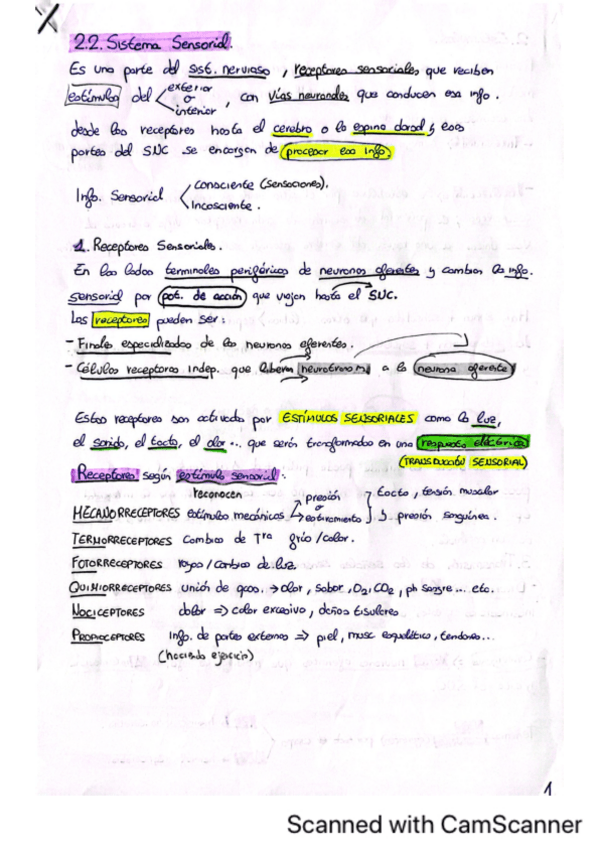 2.2. Sistema Sensorial.
Es una parte del sist. nervioso, receptores sensoriales que reciben
estímulos del exterior o interior, con vías neuronales que conducen esa info.
desde los receptores hasta el cerebro o la espina dorsal y esas
partes del SNC se encargan de procesar esa info.
Info. Sensorial consciente (sensaciones).
Incosciente.
1. Receptores Sensoriales.
En los lados terminales periféricos de neuronas aferentes y cambian la info.
sensorial por pot. de acción que viajan hasta el SNC.
Los receptores pueden ser:
- Finales especializados de las neuronas aferentes.
- Células receptoras indep. que liberan neurotransm a la neurona aferente
Estos receptores son activados por ESTÍMULOS SENSORIALES como la luz,
el sonido, el tacto, el olor... que serán transformados en una respuesta eléctrica
(TRANSDUCCIÓN SENSORIAL)
Receptores según estímulo sensorial:
reconocen
MECANORRECEPTORES estímulos mecánicos → presión o estiramiento } tacto, tensión muscular y presión sanguínea.
TERMORRECEPTORES Cambios de Tra frío/calor.
FOTORRECEPTORES rayos/cambios de luz.
QUIMIORRECEPTORES unión de qcos. → olor, sabor, O2, CO2, ph sangre... etc.
NOCICEPTORES dolor => calor excesivo, daños tisulares
PROPIOCEPTORES Info. de partes externas => piel, musc esquelético, tendones...
(haciendo ejercicio)
1
Scanned with CamScanner